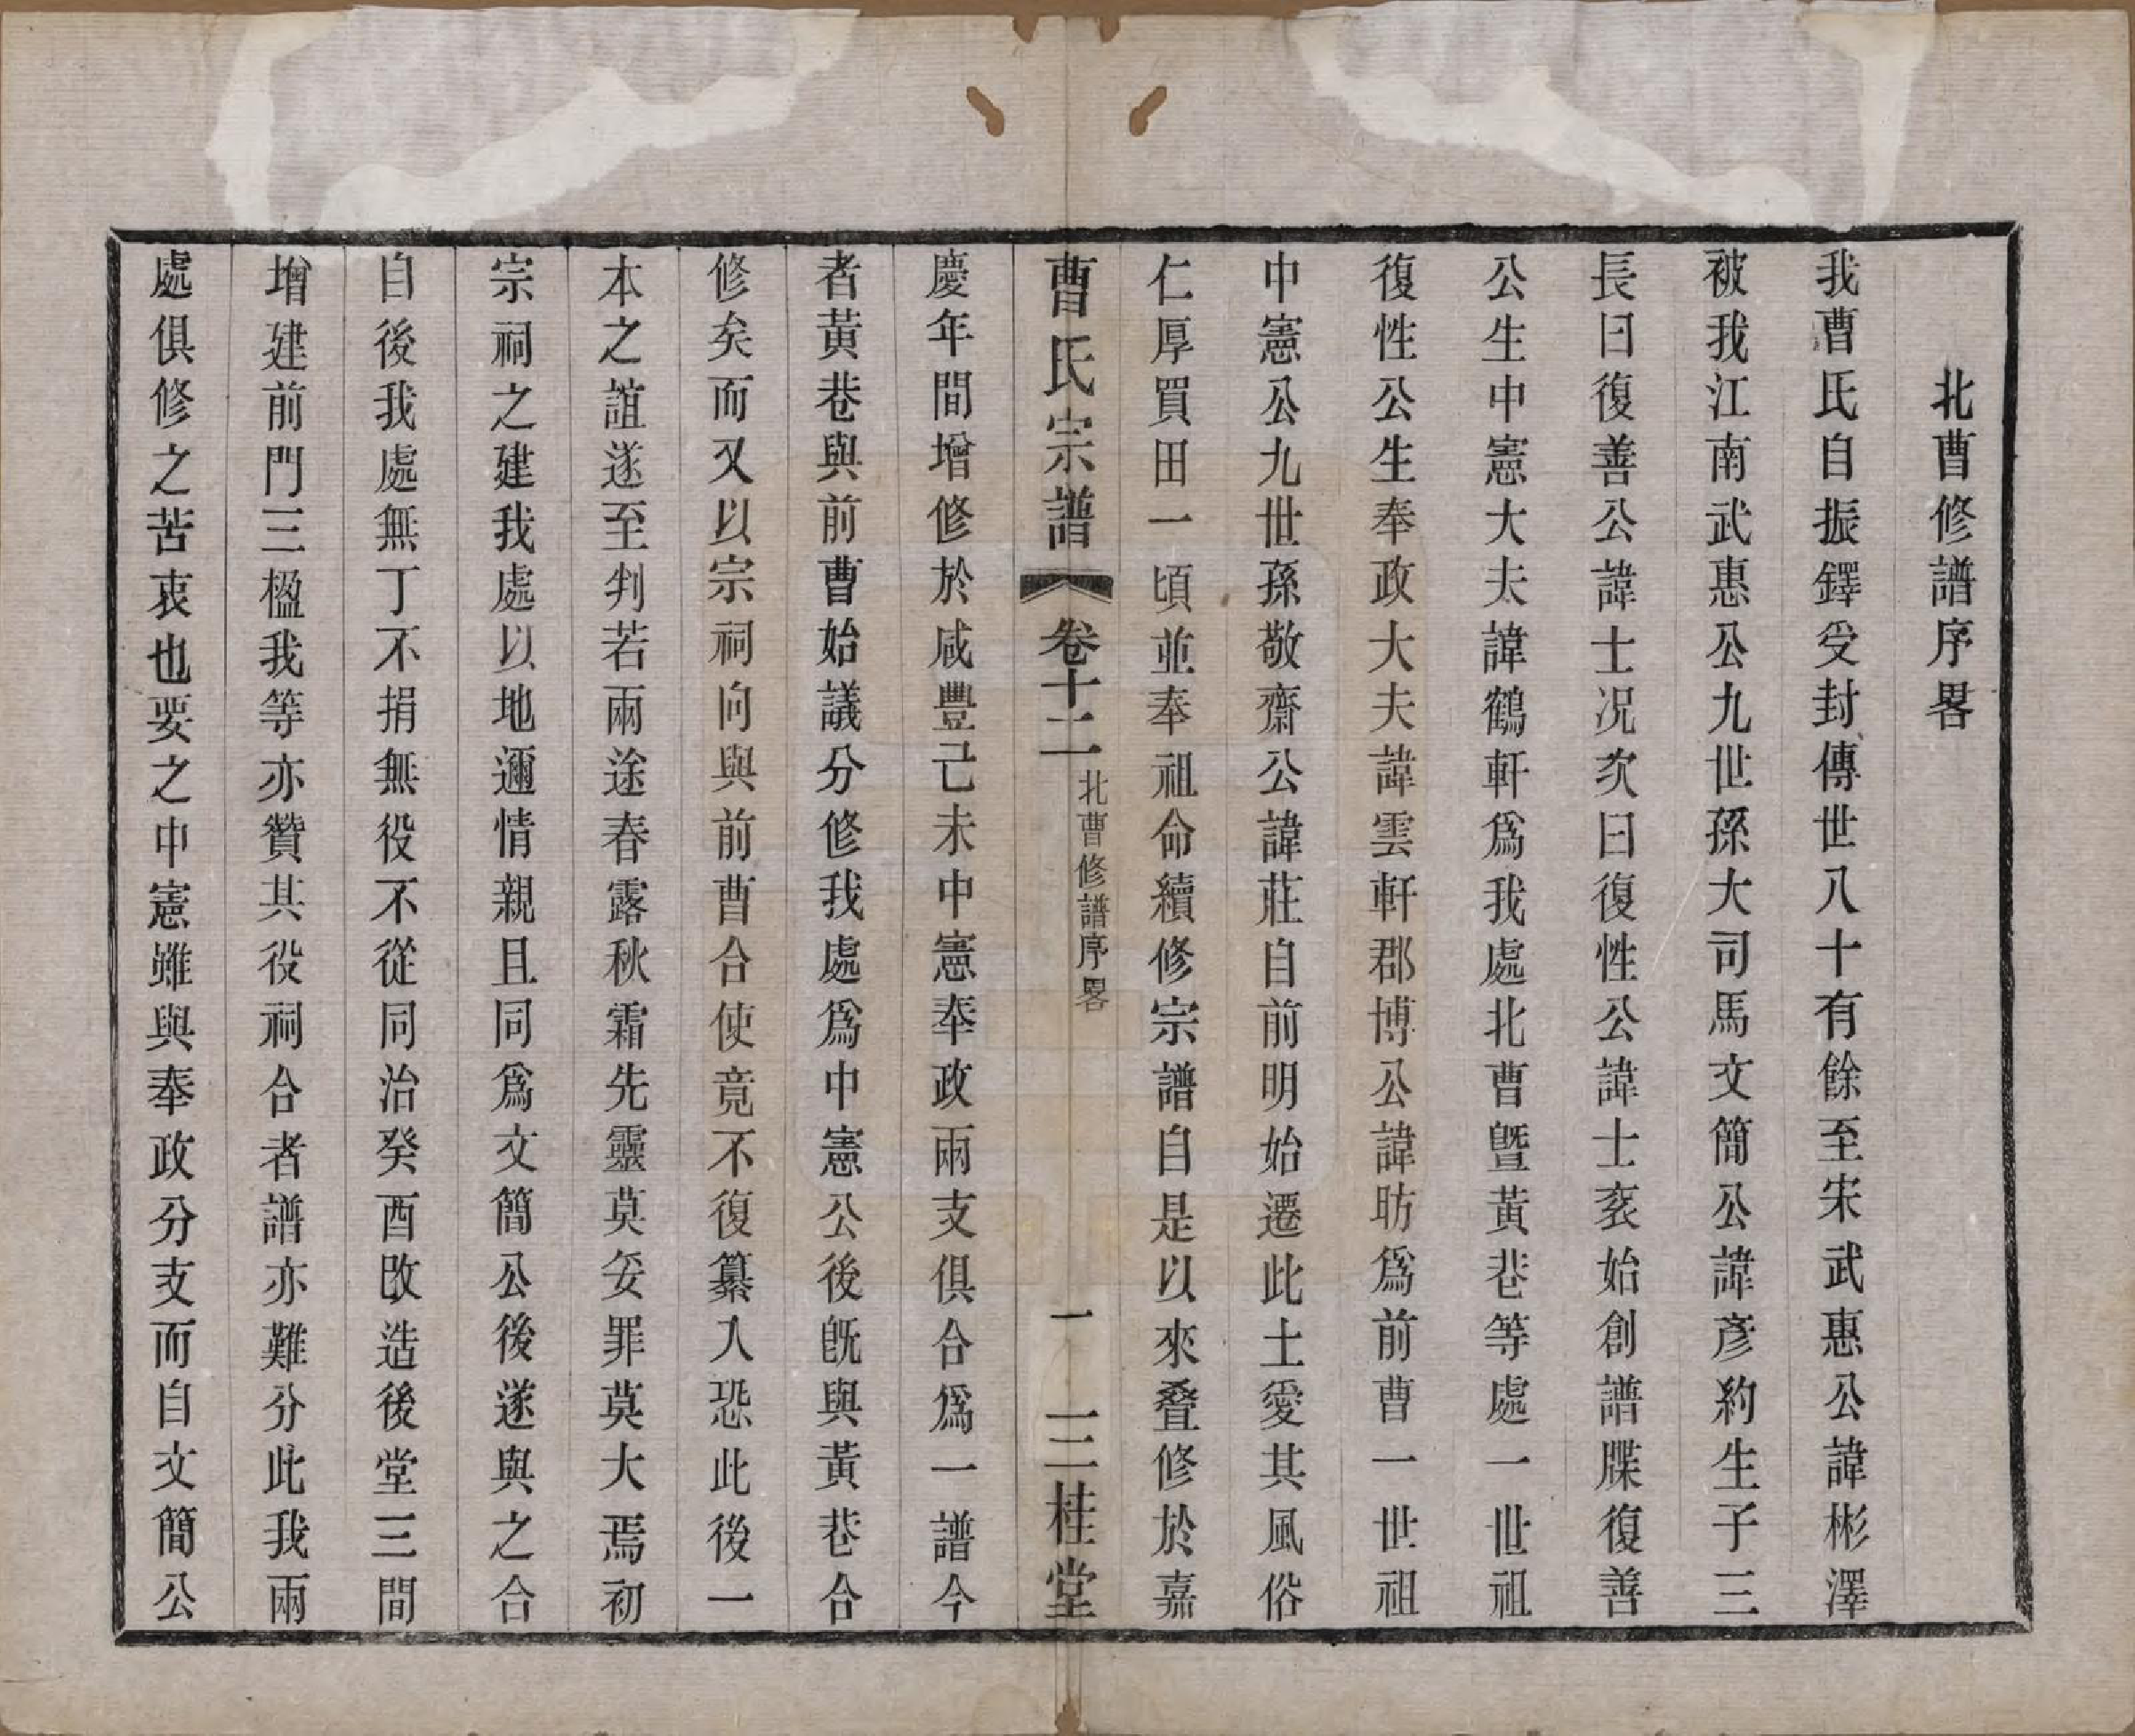 北曹修譜序畧
我曹氏自振鐸受封傳世八十有餘至宋武惠公諱彬澤
被我江南武惠公九世孫大司馬文簡公諱彥約生子三
長曰復善公諱士况次曰復性公諱士亥始創譜牒復善
公生中憲大夫諱鶴軒爲我處北曹暨黃巷等處一世祖
復性公生奉政大夫諱雲軒郡博公諱昉爲前曹一世祖
中憲公九世孫敬齋公諱莊自前明始遷此土愛其風俗
仁厚買田一頃並奉祖命續修宗譜自是以來叠修於嘉
曹氏宗譜
卷十二
北曹修譜序畧
一
三桂堂
慶年間增修於咸豐己未中憲奉政兩支俱合爲一譜今
者黃巷與前曹始議分修我處爲中憲公後旣與黃巷合
修矣而又以宗祠向與前曹合使竟不復纂入恐此後一
本之誼遂至判若兩途春露秋霜先靈莫妥罪莫大焉初
宗祠之建我處以地邇情親且同爲文簡公後遂與之合
自後我處無丁不捐無役不從同治癸酉改造後堂三間
增建前門三楹我等亦贊其役祠合者譜亦難分此我兩
處俱修之苦衷也要之中憲雖與奉政分支而自文簡公